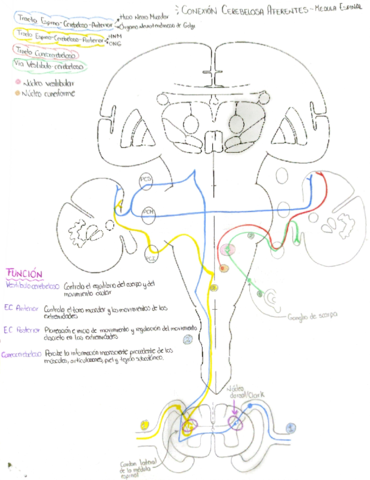 : CONEXIÓN CEREBELOSA AFERENTES - MEDULA ESPINAL
Tracto Espino-Cerebeloso-Anterior
Huso Neuro Muscular
Órgano
de Golgi
Tracto Espino-Cerebeloso-Posterior
HNM
ONG
Tracto Cuneocerebeloso
Vía Vestíbulo cerebeloso
Núcleo vestibular
Núcleo cuneiforme
PCS
PCM
PCI
Ganglio de scarpa
FUNCIÓN
Vestibulocerebeloso Controla el equilibrio del cuerpo y del
movimiento ocular
EC Anterior Controla el tono muscular y los movimientos de las
extremidades
EC Posterior
e inicio de movimiento y regulación del movimiento
en las extremidades
Cuneocerebeloso Recibe la información inconsciente procedente de los
músculos, articulaciones, piel y tejido subcutáneo.
Núcleo
dorsal/Clark
Cordón lateral
de la médula
espinal